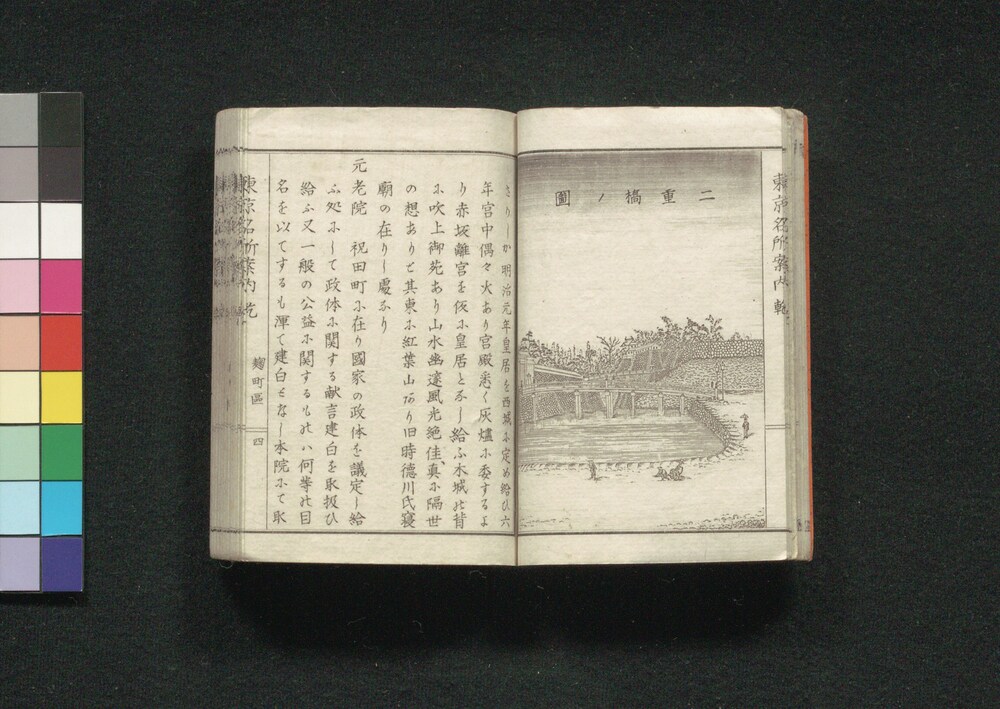 東京名所案内 乾
二重橋ノ圖
さりしか明治元年皇居を西城に定め給ひ六
年宮中偶々火あり宮殿悉く灰燼ニ委するよ
り赤坂離宮を仮ニ皇居となし給ふ本城の背
ニ吹上御苑あり山水幽邃風光絶佳真ニ隔世
の想ありと其東ニ紅葉山あり旧時徳川氏寝
廟の在りし處なり
元老院 祝田町ニ在り國家の政体を議定し給
ふ処ニして政体ニ関する献言建白を取扱ひ
給ふ又一般の公益ニ関するもの八何等の目
名を以てするも渾て建白となし本院にて取
麹町區 四
東京名所案内 乾